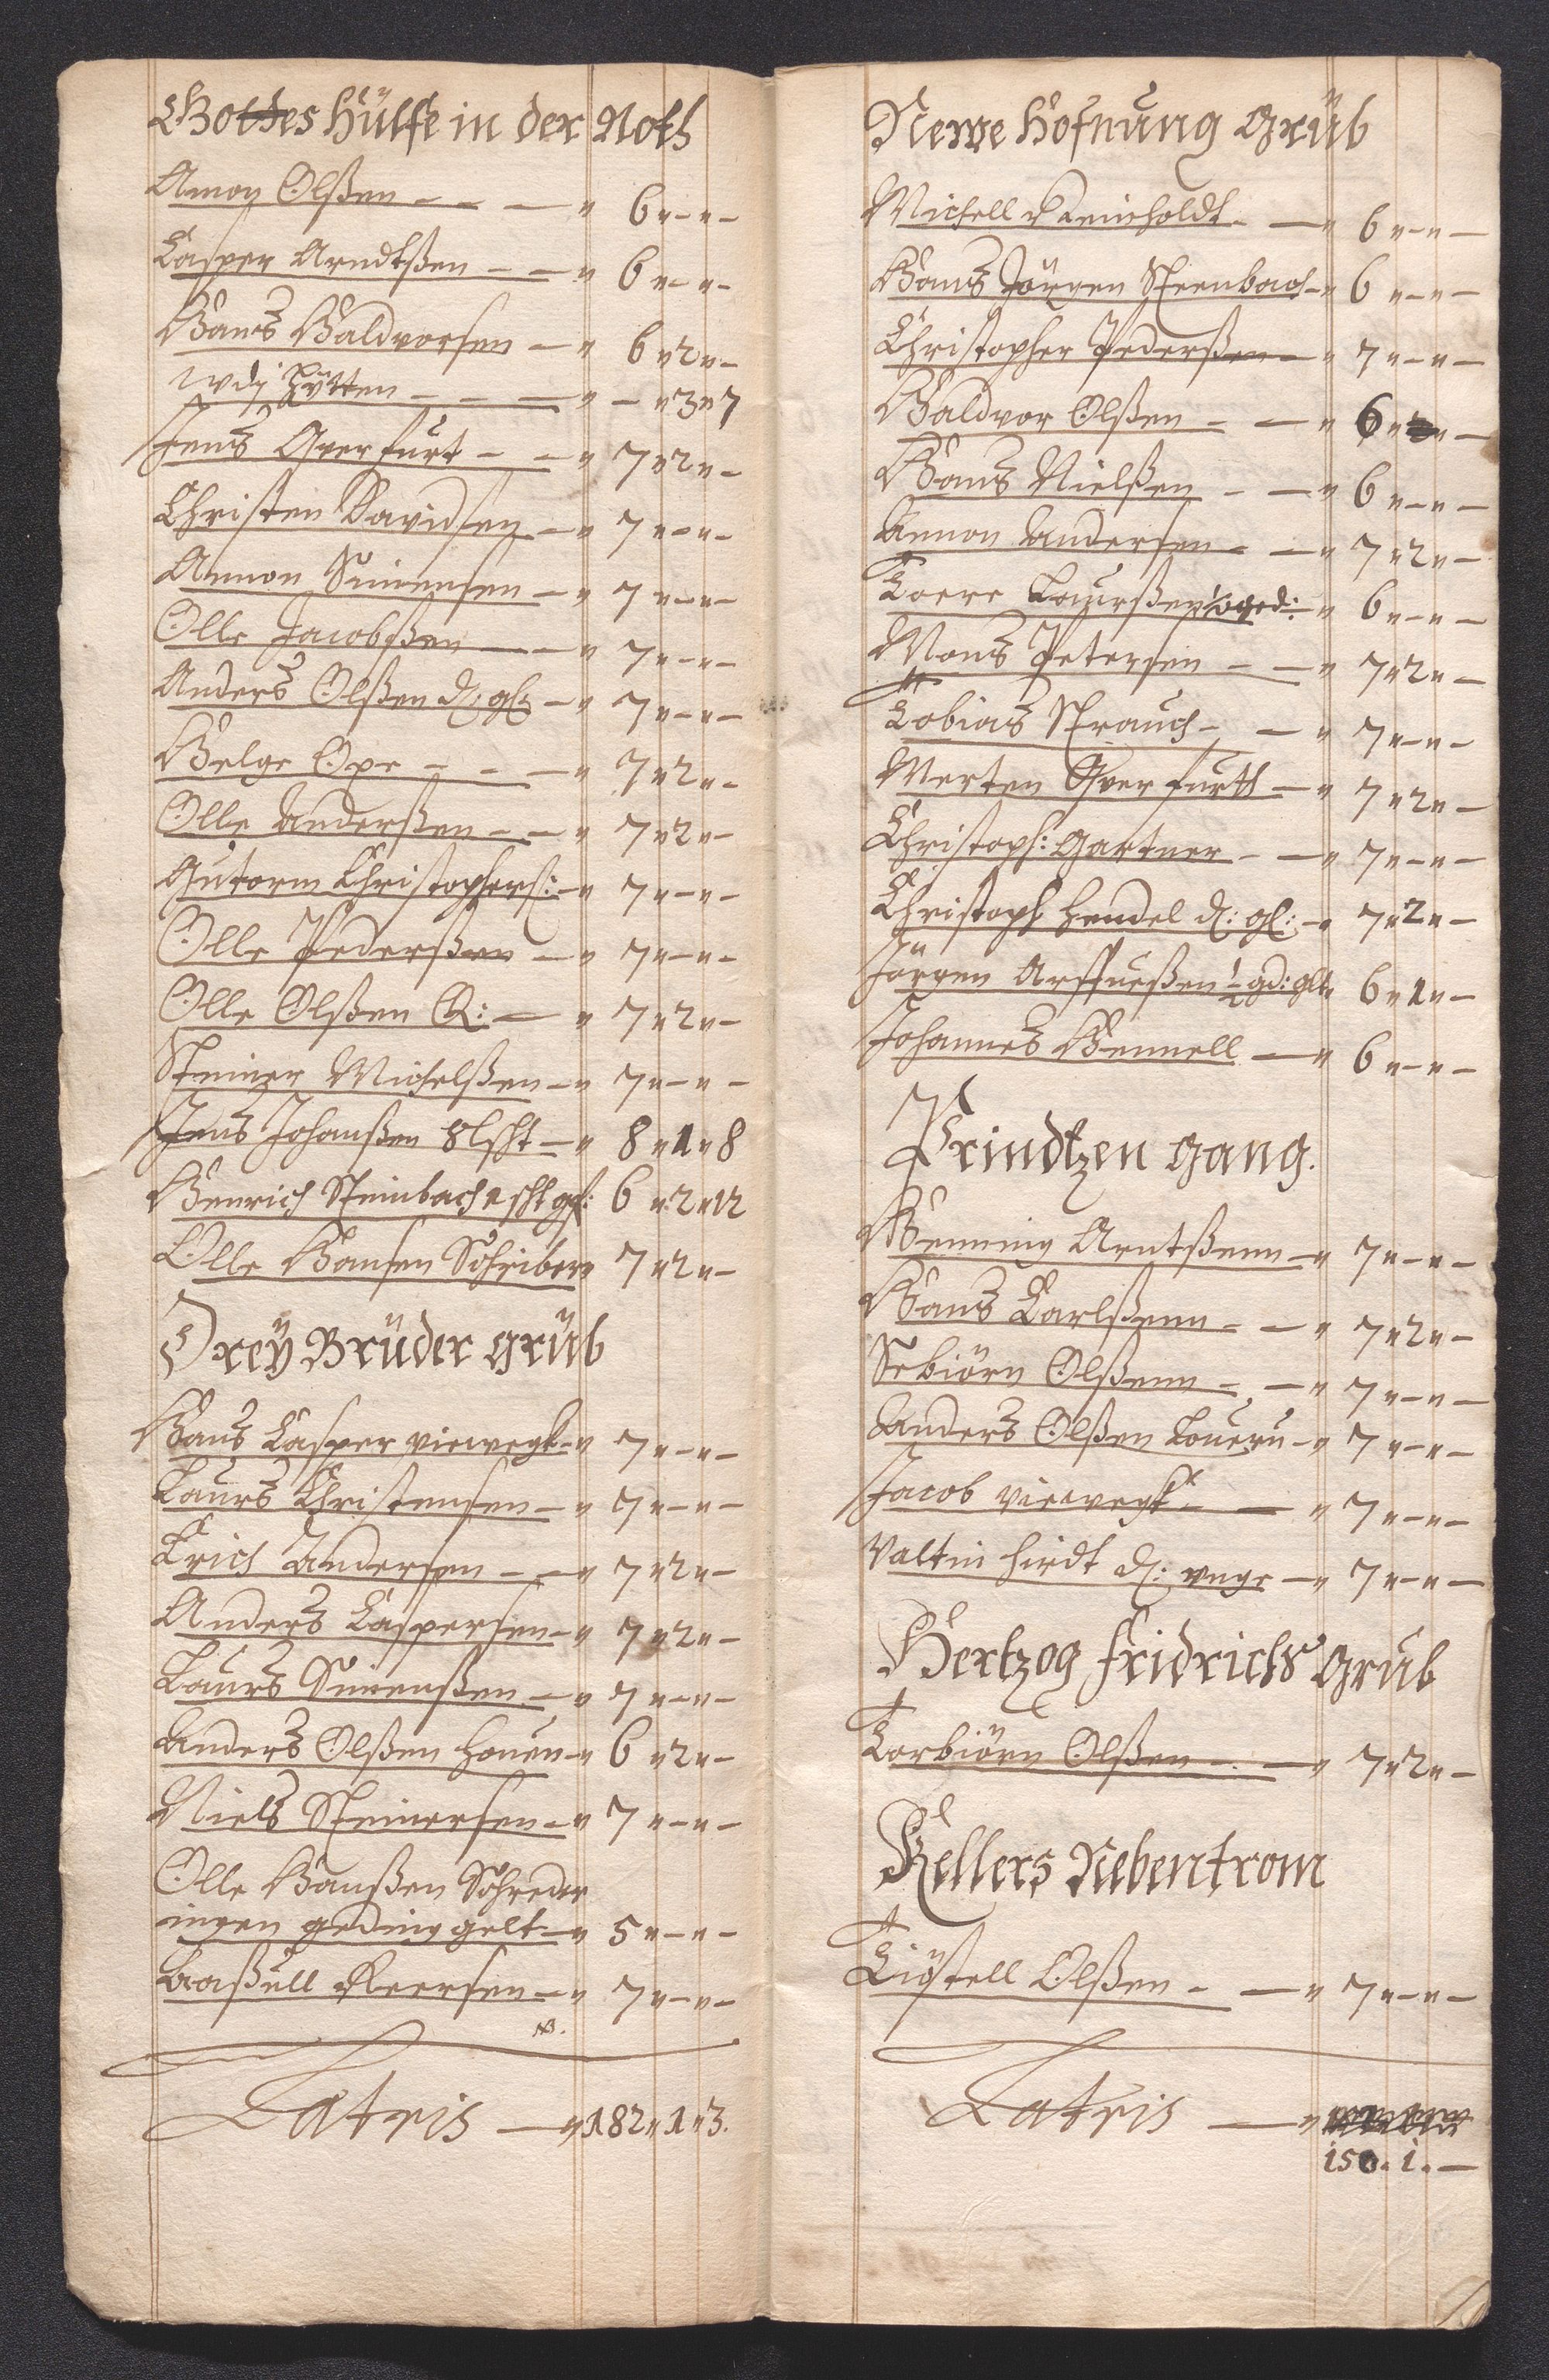 Gottes Hülffe in der Noth
Amon Olßen - - — " 6 " - " -
Casper Arndtßen - — " 6 " - " -
Hans Haldvorsen — " 6 " 2 " -
wdj Hÿtten - - — " - " 3 " 7
Jens Qverfurt - — " 7 " 2 " -
Christen Davidsen — " 7 " - " -
Ammon Simensen — " 7 " - " -
Olle Jacobßen — " 7 " - " -
Anders Olßen d: gl: — " 7 " - " -
Helge Ope - - — " 7 " 2 " -
Olle Anderßen - — " 7 " 2 " -
Gutorm Christophers: — " 7 " - " -
Olle Pederßen — " 7 " - " -
Olle Olßen R: — " 7 " 2 " -
Steiner Michelßen — " 7 " - " -
Jens Johanßen 8 lscht — " 8 " 1 " 8
Henrich Steinbach 2 scht gf: 6 " 2 " 12
Olle Hansen Schriber " 7 " 2 " -
Dreÿ Brüder grüb
Hans Casper viewegk — " 7 " - " -
Laurs Christensen — " 7 " - " -
Erich Andersen - — " 7 " 2 " -
Anders Caspersen — " 7 " 2 " -
Laurs Simenßen — " 7 " - " -
Anders Olßen Houen — " 6 " 2 " -
Niels Steinersen — " 7 " - " -
Olle Hanßen Schreder
ingen geding gelt — " 5 " - " -
Aaßull Reersen — " 7 " - " -
NB.
Latris — " 182 " 1 " 3.
Newe Hofnung Grüb
Michell Reinholdt - — " 6 " - " -
Hans Jörgen Steenbach — " 6 " - " -
Christopher Pederßen — " 7 " - " -
Haldvor Olßen - — " 6 " - " -
Hans Nielßen - — " 6 " - " -
Ammon Andersen - — " 7 " 2 " -
Tore Laurßen ged: — " 6 " - " -
Mons Petersen - — " 7 " 2 " -
Tobias Strauch - — " 7 " - " -
Merten Qverfurth — " 7 " 2 " -
Christoph: Gartner - — " 7 " - " -
Christoph Hendel d: gl: — " 7 " 2 " -
Jörgen Arffueßen ½ gd: glt " 6 " 1 " -
Johannes Hennell — " 6 " - " -
Prindtzen Gang.
Henning Arntßenn — " 7 " - " -
Hans Carlßenn - — " 7 " 2 " -
Sebiörn Olßenn - — " 7 " - " -
Anders Olßen Loueru — " 7 " - " -
Jacob viewegk - — " 7 " - " -
Valtin Hirdt d: unge — " 7 " - " -
Hertzog Fridrichs Grüb
Torbiörn Olßen - — " 7 " 2 " -
Kellers Nebentrom
Kiöstell Olßen - — " 7 " - " -
Latris — "
150. 1. —